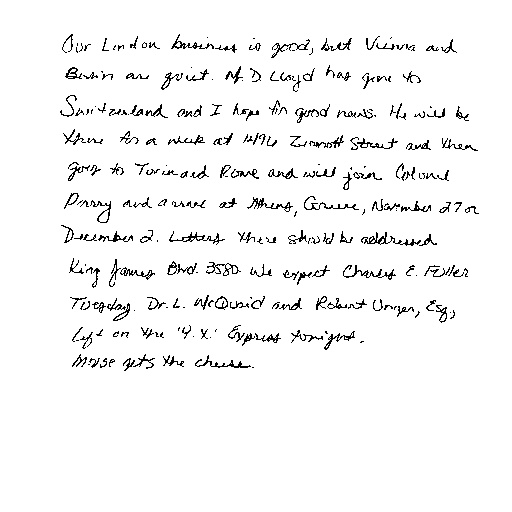 Our London business is good, but Vienna and
Berlin are quiet. Mr. D. Lloyd has gone to
Switzerland and I hope for good news. He will be
there for a week at 1496 Zermott Street and then
goes to Turin and Rome and will join Colonel
Parry and arrive at Athens, Greece, November 27 or
December 2. Letters there should be addressed
King James Blvd. 3580. We expect Charles E. Fuller
Tuesday. Dr. L. McQuaid and Robert Unger, Esq.,
left on the 'Y. X.' Express tonight.
mouse gets the cheese.